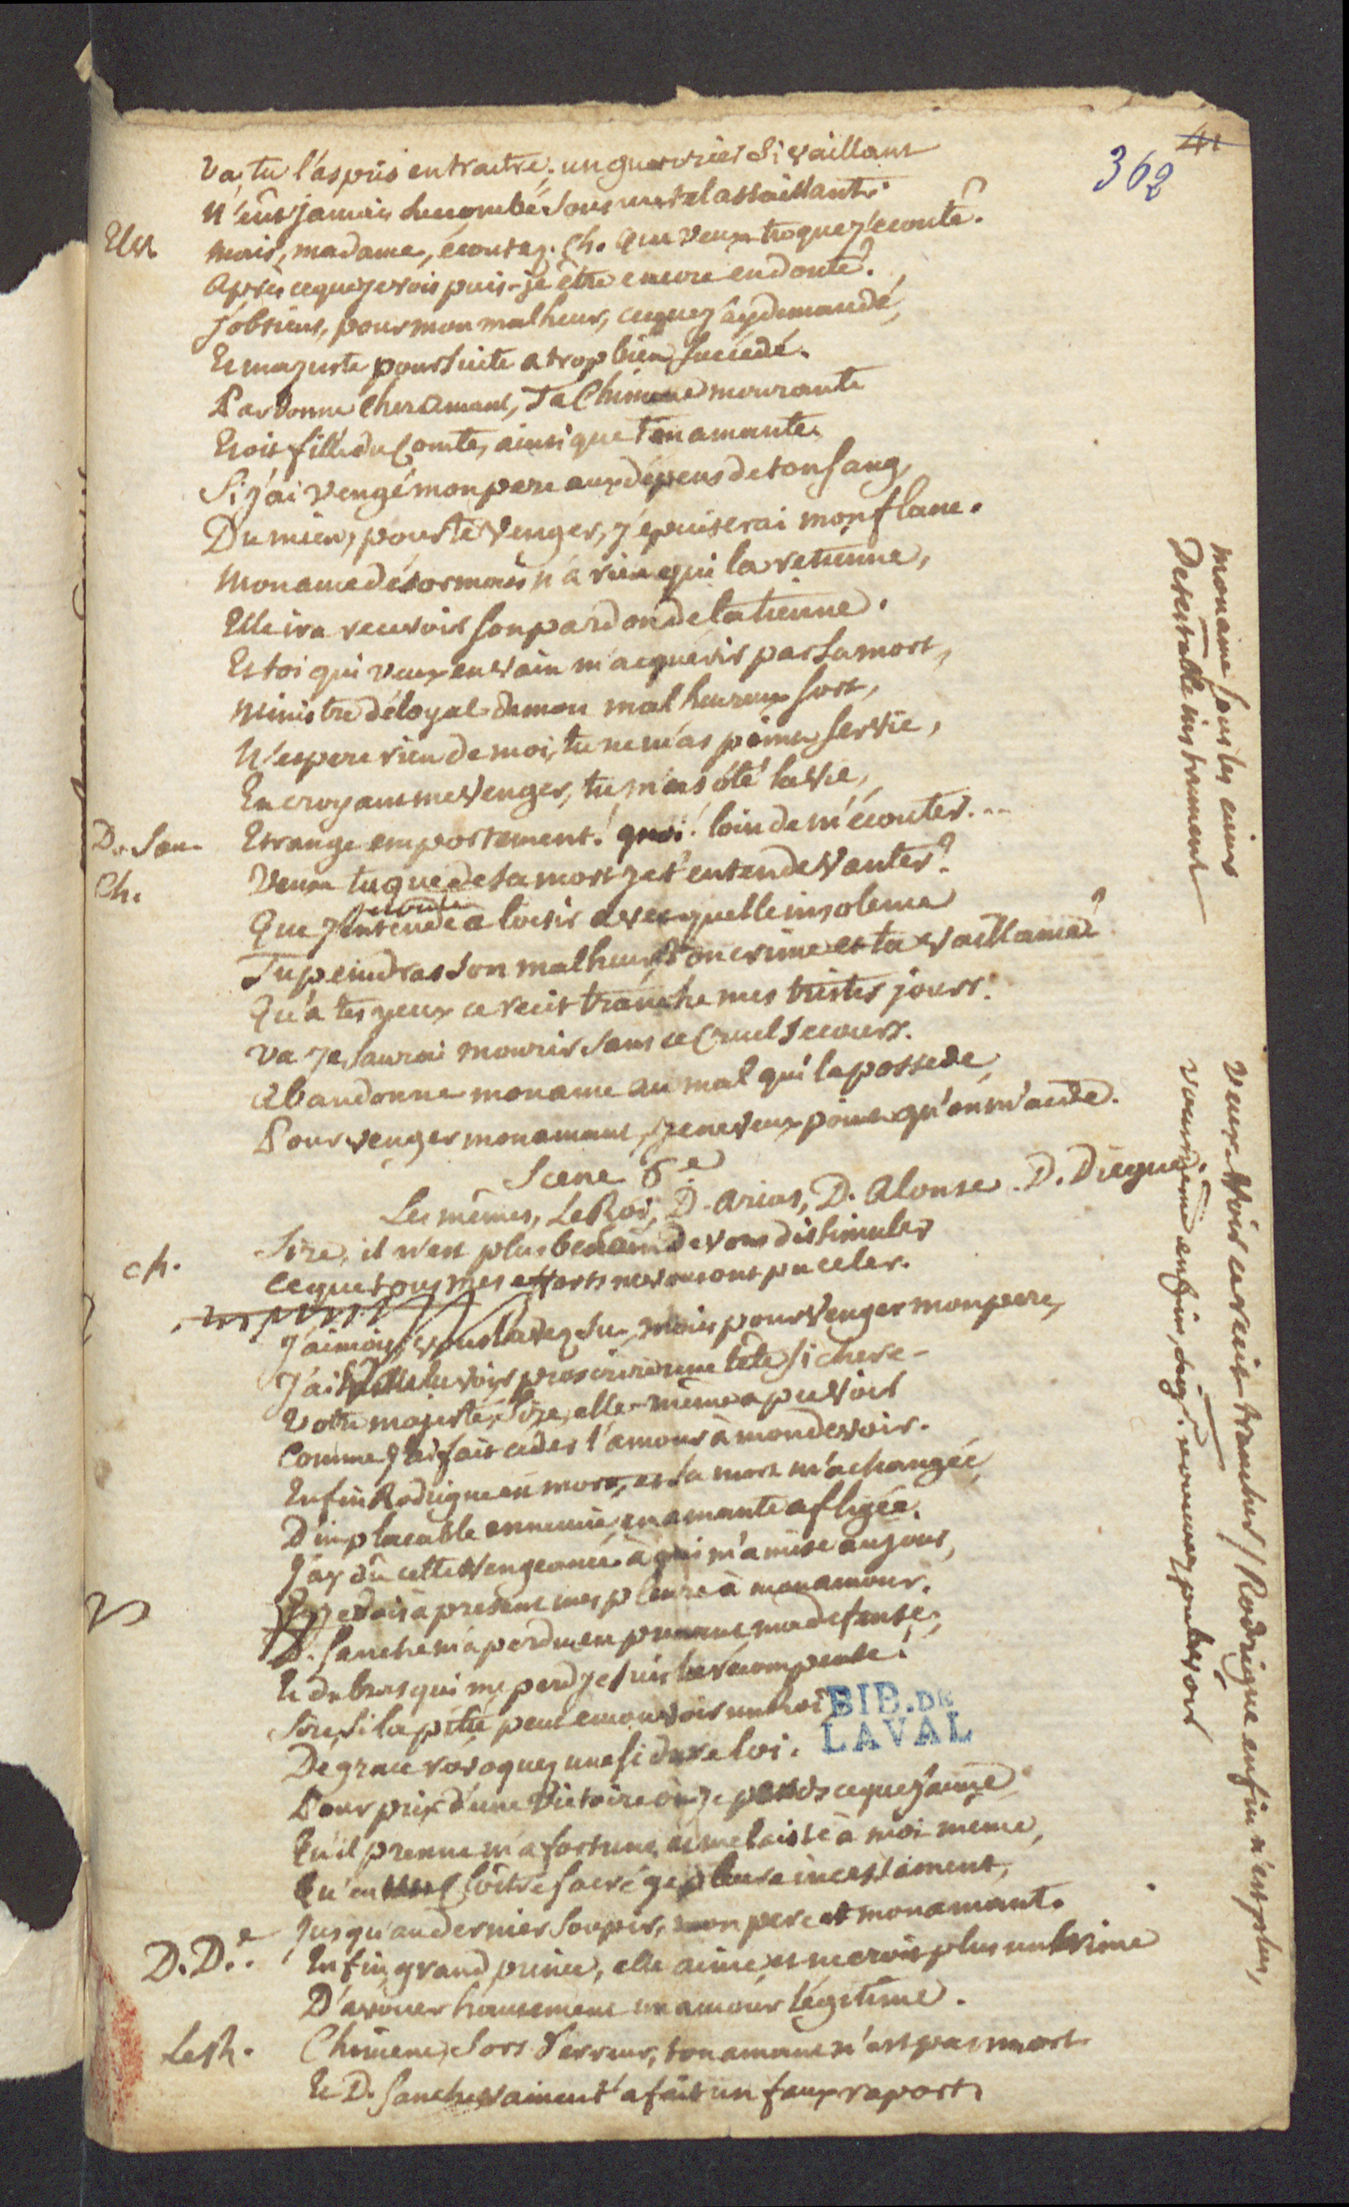 41
362
Va, tu l'as pris en traitre; un guerrier si vaillant
N'eût jamais succombé sous un tel assaillant.
Elv. Mais, madame, écoutez. Ch. Que veux tu que j'écoute?
Après ce que je vois puis-je être encore en doute?
J'obtiens, pour mon malheur, ce que j'ay demandé,
Et ma juste poursuite a trop bien succédé.
Pardonne cher amant, Ta Chimene mourante
Etoit fille du Comte, ainsi que ton amante.
Si j'ai vengé mon pere aux dépens de ton sang,
Du mien, pour te Venger, j'épuiserai mon flanc.
Mon ame désormais n'a rien qui la retienne,
Elle ira recevoir son pardon de la tienne.
Et toi qui veux en vain m'acquérir par sa mort,
Ministre déloyal de mon malheureux sort,
N'espere rien de moi, tu ne m'as point servie,
En croyant me Venger, tu m'as ôté la vie,
D. San. Etrange emportement! quoi! loin de m'écouter...
Ch. Veux tu que de sa mort je t'entende Vanter?
Que j'entende a loisir avec quelle insolence
écoute
Tu peindras son malheur, ton crime et ta vaillance?
Qu'à tes yeux ce recit tranche mes tristes jours.
Va je saurai mourir sans ce Cruel secours.
Abandonne mon ame au mal qui la possede,
Pour venger mon amant, je ne veux point qu'on m'aide.
Scene 6e.
Les mêmes, Le Roi, D. Arias, D. Alonse. D. Diegue.
ch. Sire, il n'est plus besoin de vous dissimuler
Ce que tous mes efforts ne vous ont pu celer.
J'aimois, vous l'avez su, mais pour Venger mon pere,
J'ai voulu proscrire une tête si chere.
Votre majesté, Sire, elle-même a pu voir
Comme j'ai fait céder l'amour à mon devoir.
Enfin Rodrigue est mort, et sa mort m'a changée,
D'implacable ennemie, en amante afligée.
J'ay dû cette Vengeance à qui m'a mise au jour,
Et je dois à present mes pleurs à mon amour.
D. Sanche m'a perdue en prenant ma défense,
Et du bras qui me perd je suis la récompense!
Sire, si la pitié peut émouvoir un Roi,
De grace révoquez une si dure loi.
Pour prix d'une Victoire où je perds ce que j'aime,
Qu'il prenne ma fortune, et me laisse à moi même,
Qu'en un Cloître sacré je pleure incessament,
Jusqu'au dernier soupir, mon pere et mon amant.
D. D.e. Enfin, grand prince, elle aime, et ne croit plus un Crime
D'avouer hautement un amour légitime.
Le R. Chimene, sors d'erreur, ton amant n'est pas mort
Et D. Sanche vaincu t'a fait un faux raport.
BIB. DE
LAVAL
mon ame sous les
Detestable instrument
Veux-tu voir ce recit trancher / Rodrigue enfin n'est plus,
enfin,